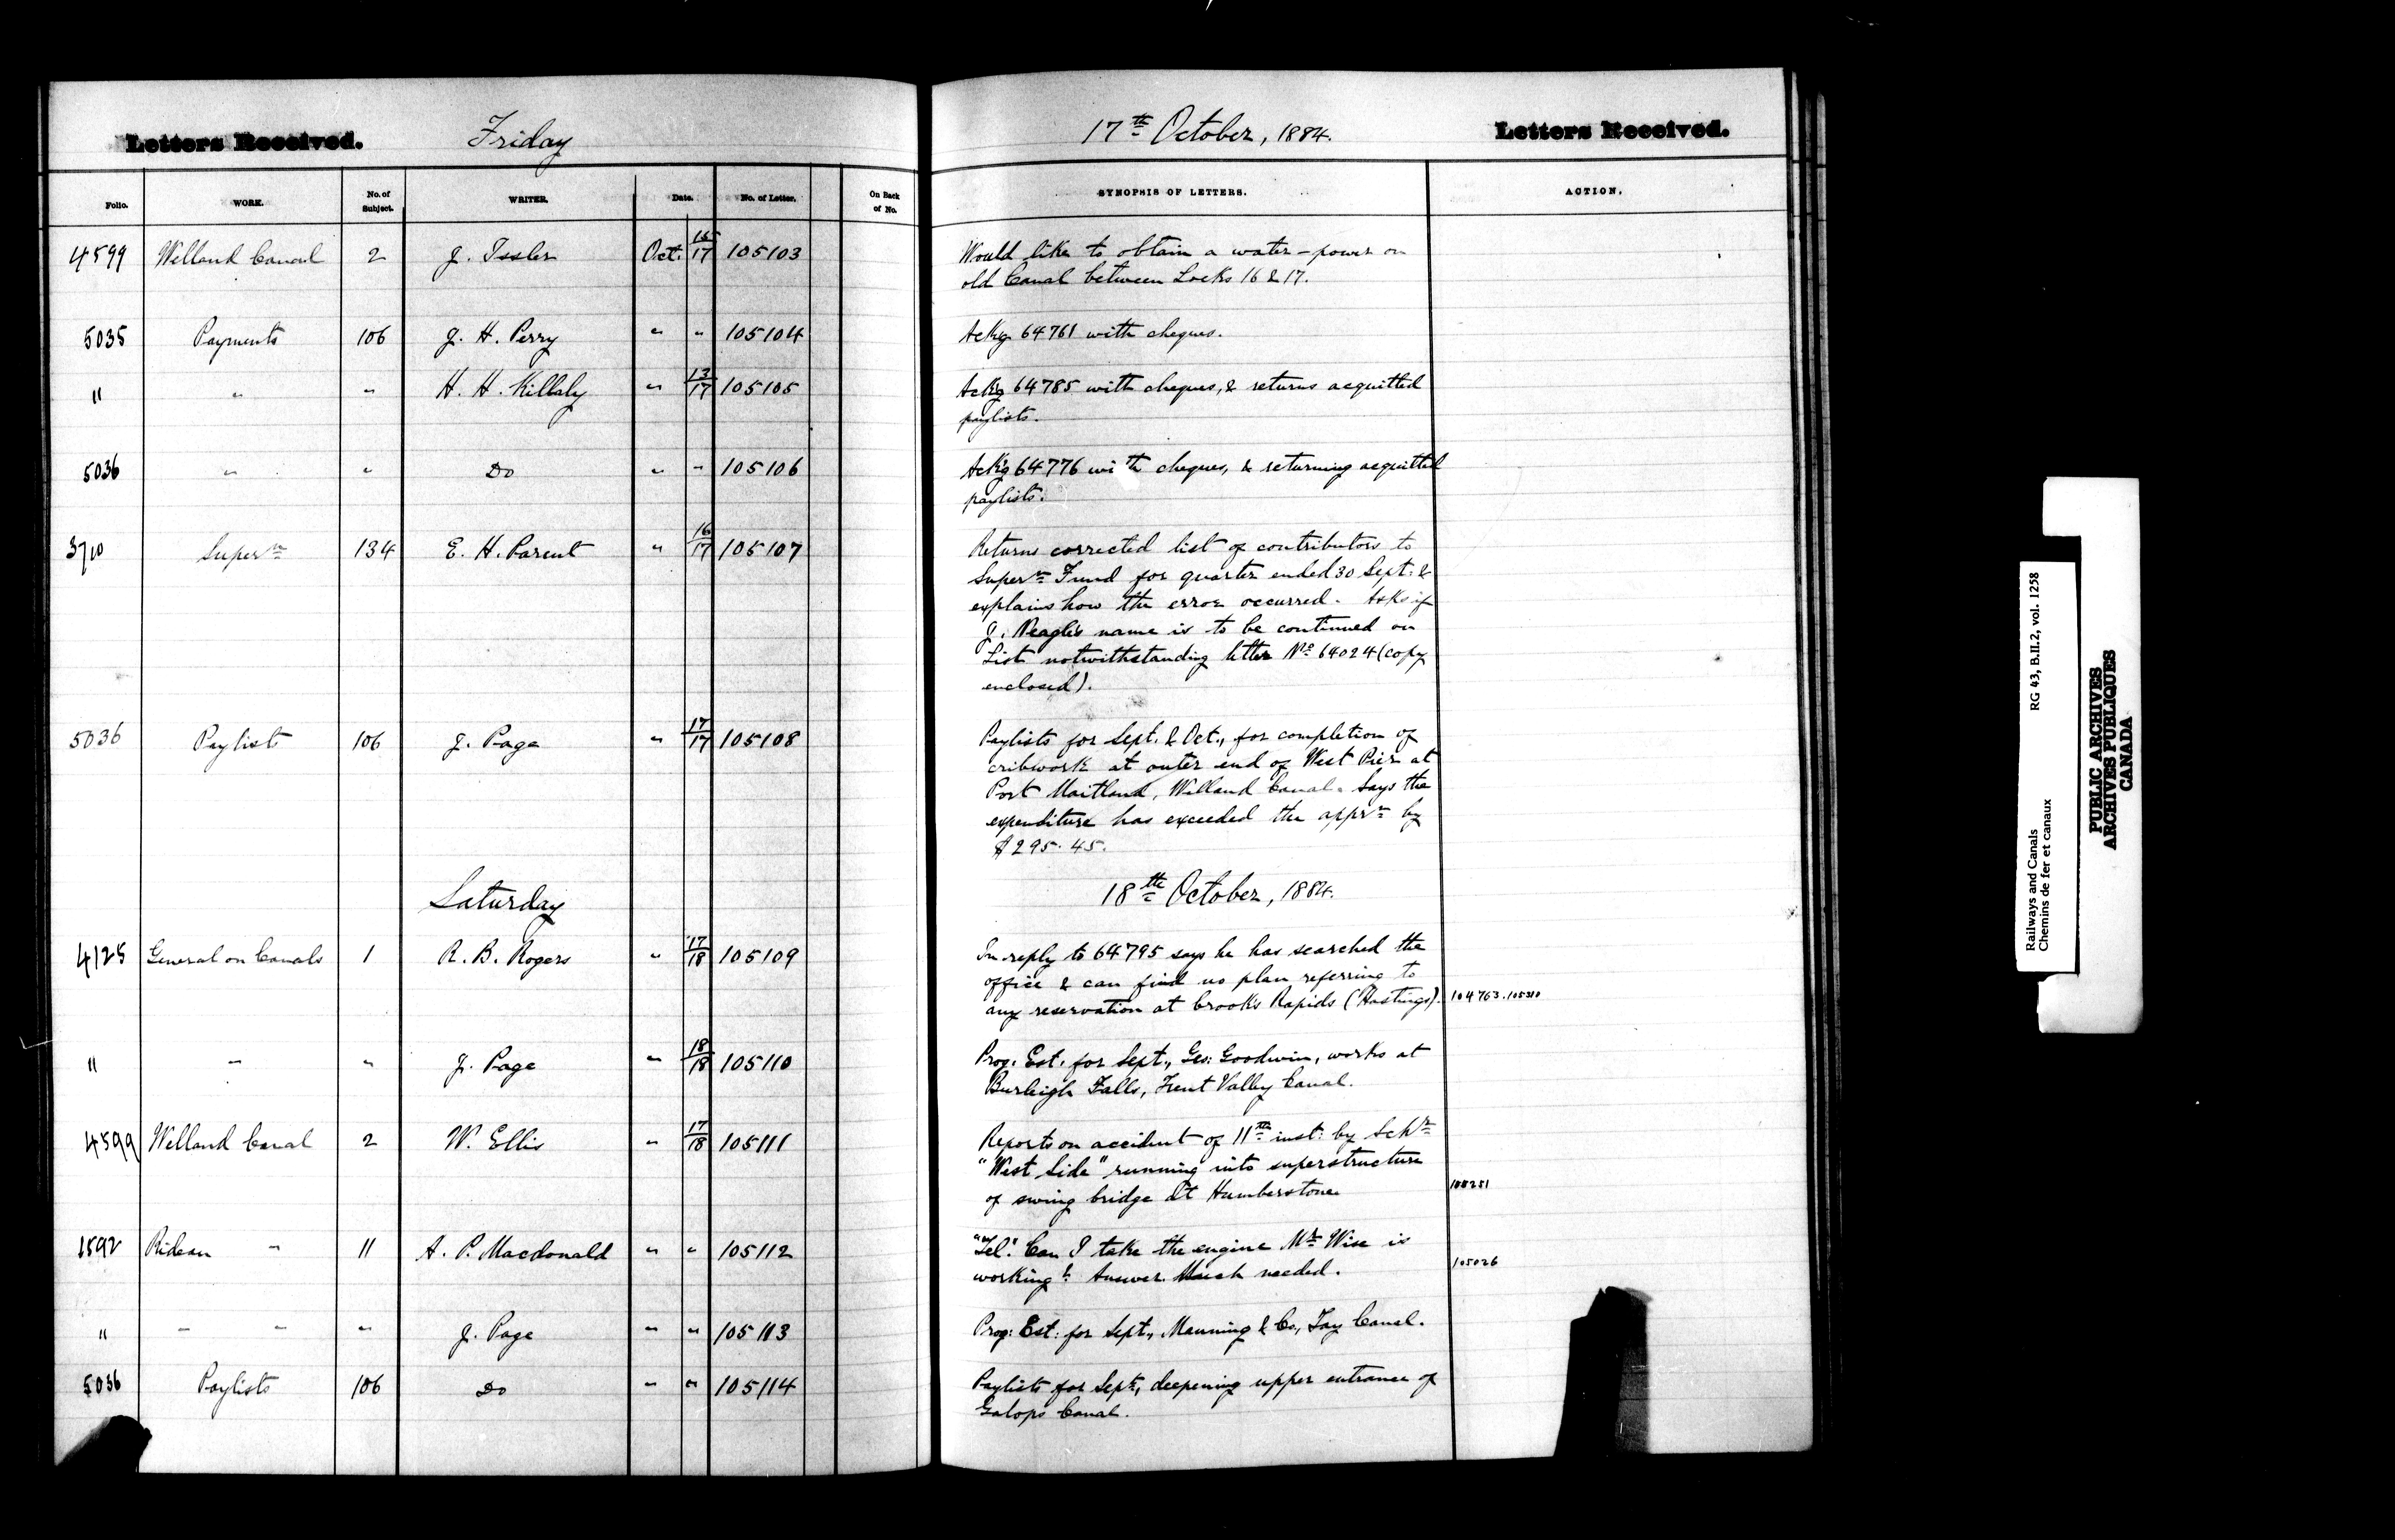 Letters Received. Friday 17th October, 1884. Letters Received.
Folio. WORK. No. of Subject. WRITER. Date. No. of Letter. On Back of No. SYNOPSIS OF LETTERS. ACTION.
4599 Welland Canal 2 J. Issler Oct. 15/17 105103 Would like to obtain a water-power on
old Canal between Locks 16 & 17.
5035 Payments 106 J. H. Perry " " 105104 Ackg 64761 with cheques.
" " " H. H. Killaly " 13/17 105105 Ackg 64785 with cheques, & returns acquitted
paylists.
5036 " " Do " " 105106 Ackg 64776 with cheques, & returning acquitted
paylists.
3710 Supern 134 E. H. Parent " 16/17 105107 Returns corrected list of contributors to
Supern Fund for quarter ended 30 Sept: &
explains how the error occurred. Asks if
J. Neagle's name is to be continued on
List notwithstanding letter No 64024 (copy
enclosed).
5036 Paylists 106 J. Page " 17/17 105108 Paylists for Sept. & Oct., for completion of
cribwork at outer end of West Pier at
Port Maitland, Welland Canal. Says the
expenditure has exceeded the apprn by
$295.45.
Saturday 18th October, 1884.
4125 General on Canals 1 R. B. Rogers " 17/18 105109 In reply to 64795 says he has searched the
office & can find no plan referring to
any reservation at Crooks Rapids (Hastings). 104763. 105310
" " " J. Page " 18/18 105110 Prog. Est. for Sept., Geo: Goodwin, works at
Burleigh Falls, Trent Valley Canal.
4599 Welland Canal 2 W. Ellis " 17/18 105111 Reports on accident of 11th inst: by Schr
"West Side" running into superstructure
of swing bridge at Humberstone 105251
1592 Rideau " 11 A. P. Macdonald " " 105112 "Tel". Can I take the engine Mr Wise is
working? Answer. Much needed. 105026
" " " " J. Page " " 105113 Prog: Est: for Sept., Manning & Co., Tay Canal.
5036 Paylists 106 Do " " 105114 Paylists for Sept., deepening upper entrance of
Galops Canal.
Railways and Canals RG 43, B.II.2, vol. 1258
Chemins de fer et canaux
PUBLIC ARCHIVES
ARCHIVES PUBLIQUES
CANADA